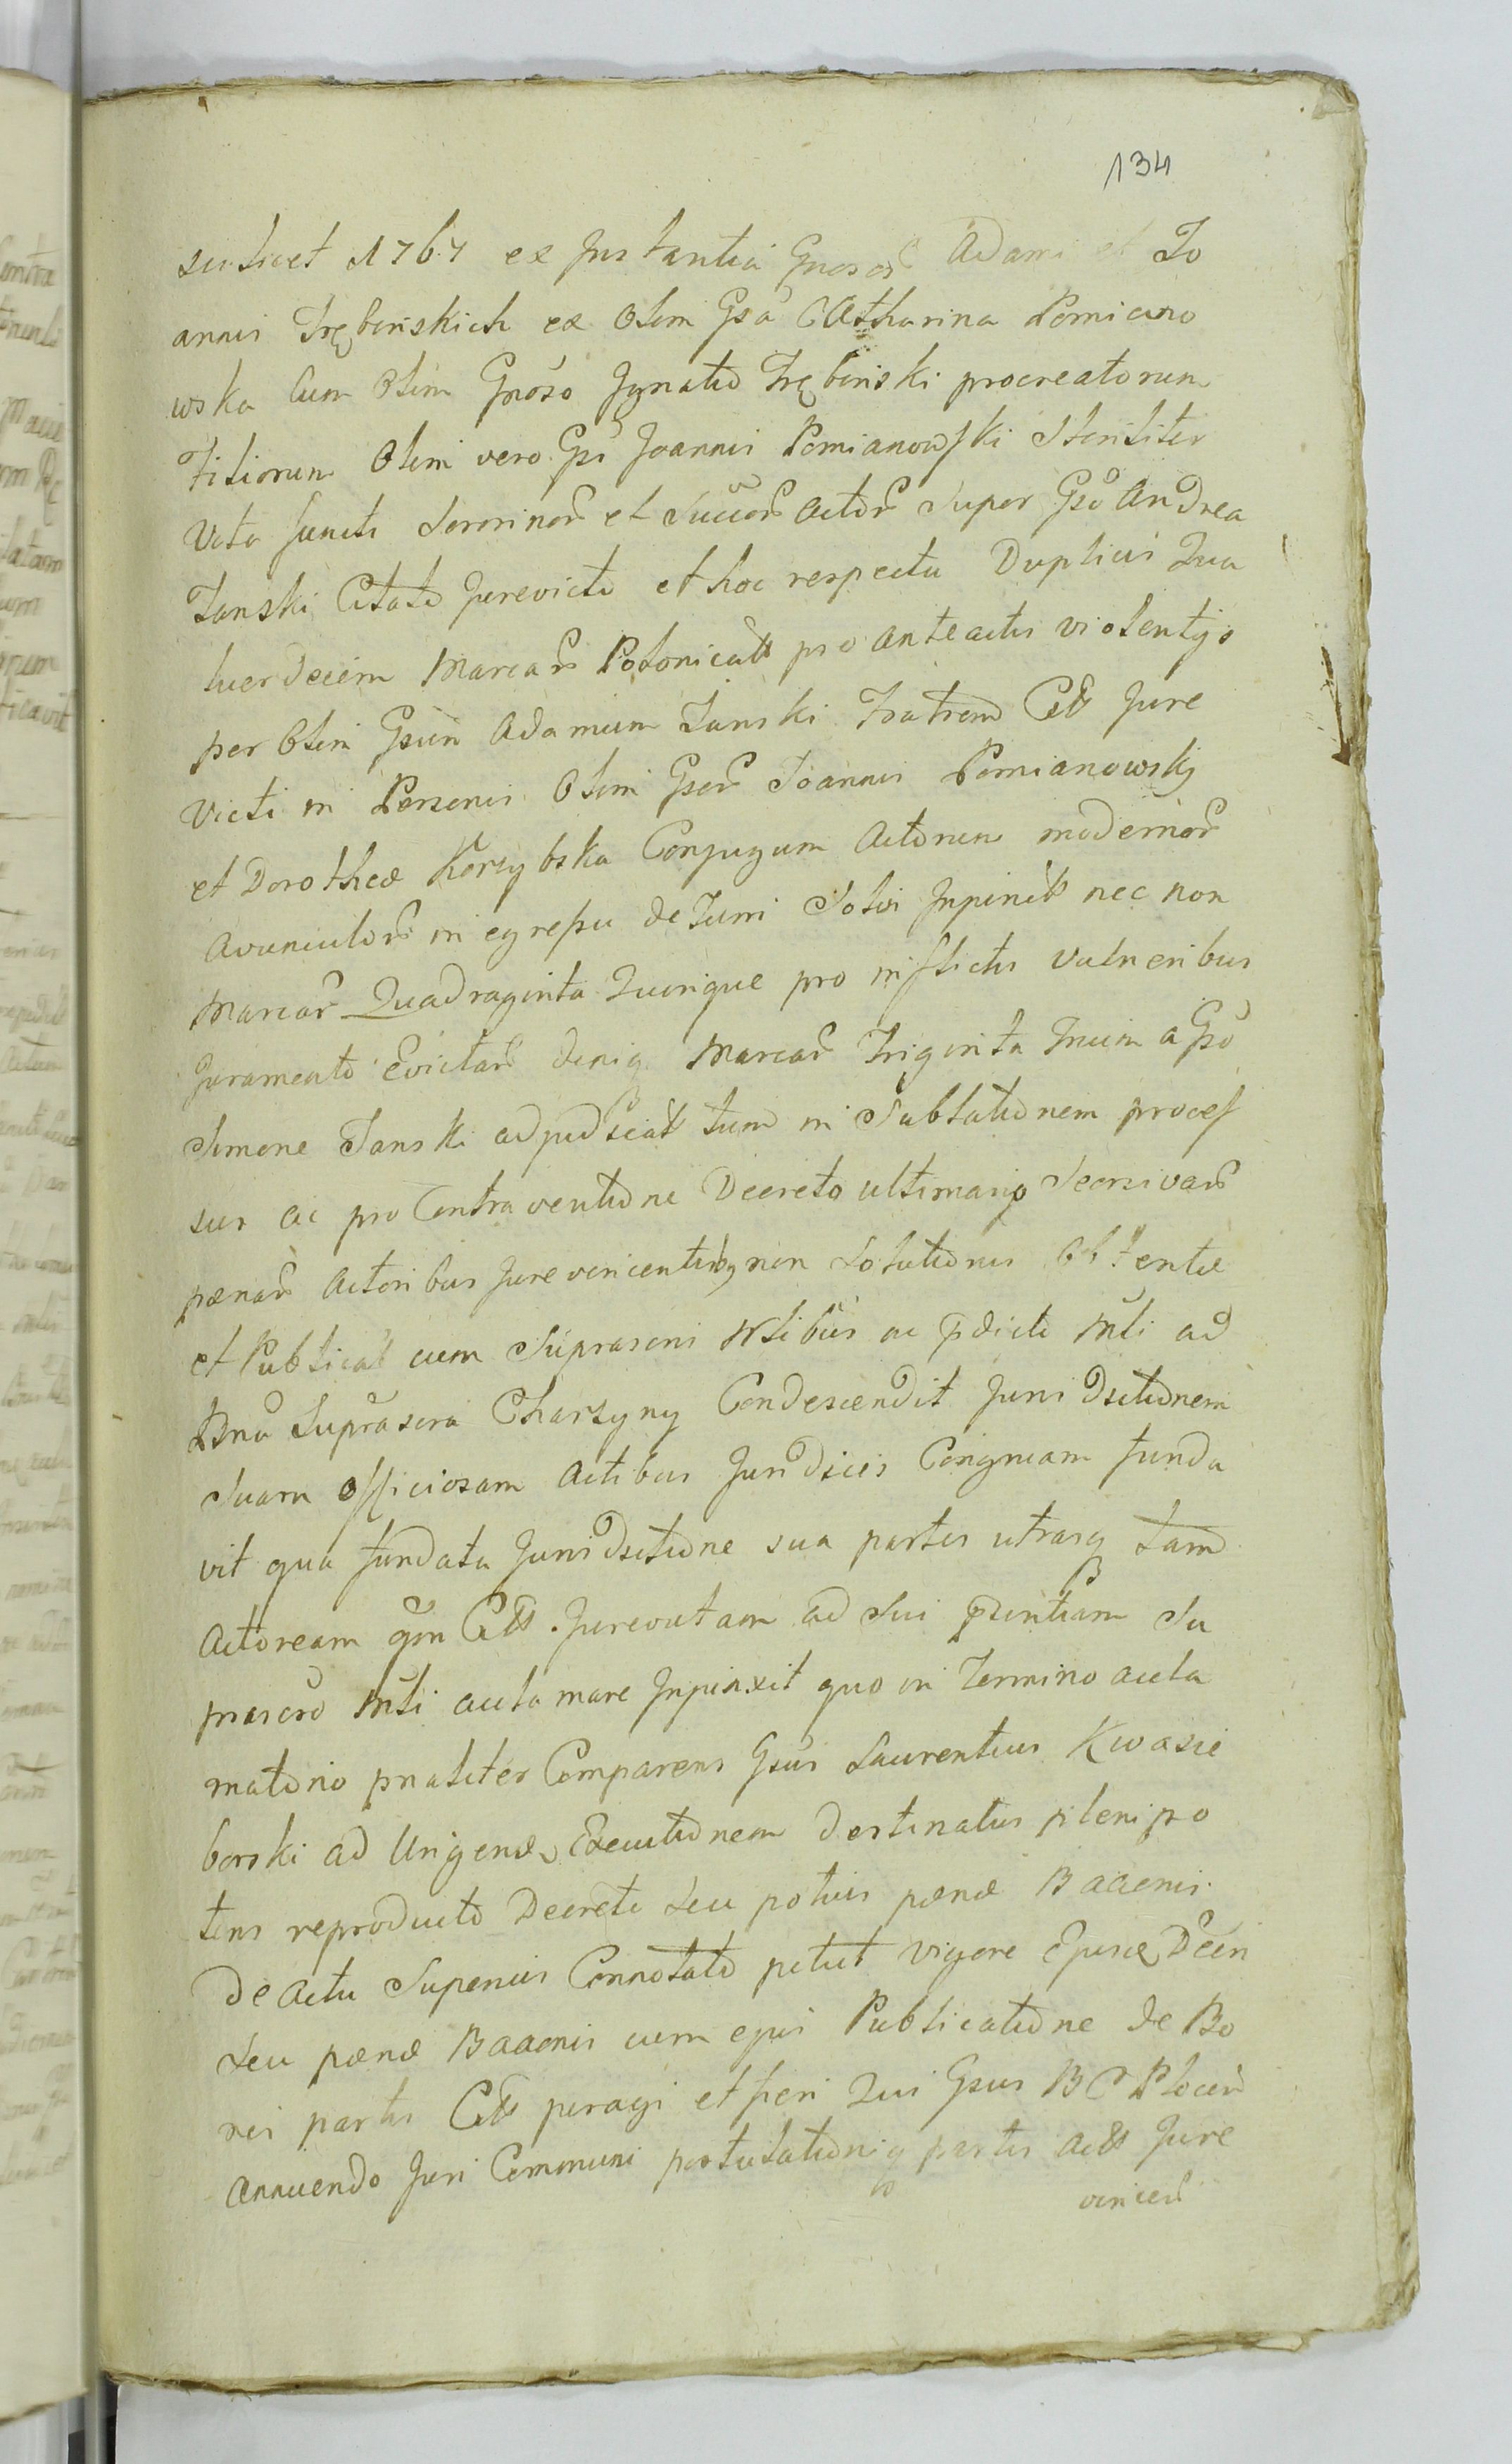 134
scilicet 1767 ex Instantia Gnosor Adami et Jo
annis Trębinskich ex Olim Gsa Catharina Pomiano
wska cum Olim Gnoso Ignatio Trębinski procreatorum
Filiorum Olim vero Gsi Joannis Pomianowski Steriliter
Vita functi Sororinor et Succor Actor Super Gso Andrea
Janski Citato Jurevicto et hoc respectu Duplicis Qua
tuerdecim Marcar Polonical pro anteactis violentijs
per Olim Gsum Adamum Janski Fratrem Citt Jure
Victi in Personis Olim Gsor Joannis Pomianowskij
et Dorotheæ Korzybska Conjugum Actorum modernor
Avunculor in egressu de Turri Solvi Inpinct nec non
Marcar Quadraginta Quinque pro inflictis Vulneribus
Juramento Evictar deniq Marcar Triginta Trium a Gso
Simone Janski adjudicat tum in Sublationem proces
sus ac pro Contraventione Decreto ultimario
pænar Actoribus Jurevincentibq non Solutionis Obtentæ
et Publicat cum Suprascris Nlibus ac pdicti Mli ad
Bna Suprascra Charzyny Condescendit Jurisdictionem
Suam officiosam Actibus Juridicis Congruam funda
vit qua fundata Jurisdictione sua partes utrasq tam
Actoream qm Citt Jurevictam ad Sui pzentiam Su
prascro Mli acclamare Inpinxit quo in Termino accla
matorio pnaliter Comparens Gsus Laurentius Kwasie
borski ad Executionem destinatus plenipo
tens reproducto Decreto Seu potius pænæ Baaenis
de Actu Superius Connotato petiit Vigore Ejusce Dcen
Seu pænæ Baaenis cum ejus Publicatione de Bo
nis partis Citt peragi et fieri Qui Gsus B C Plocen
annuendo Juri Communi postulationiq partis Act Jure
vincen